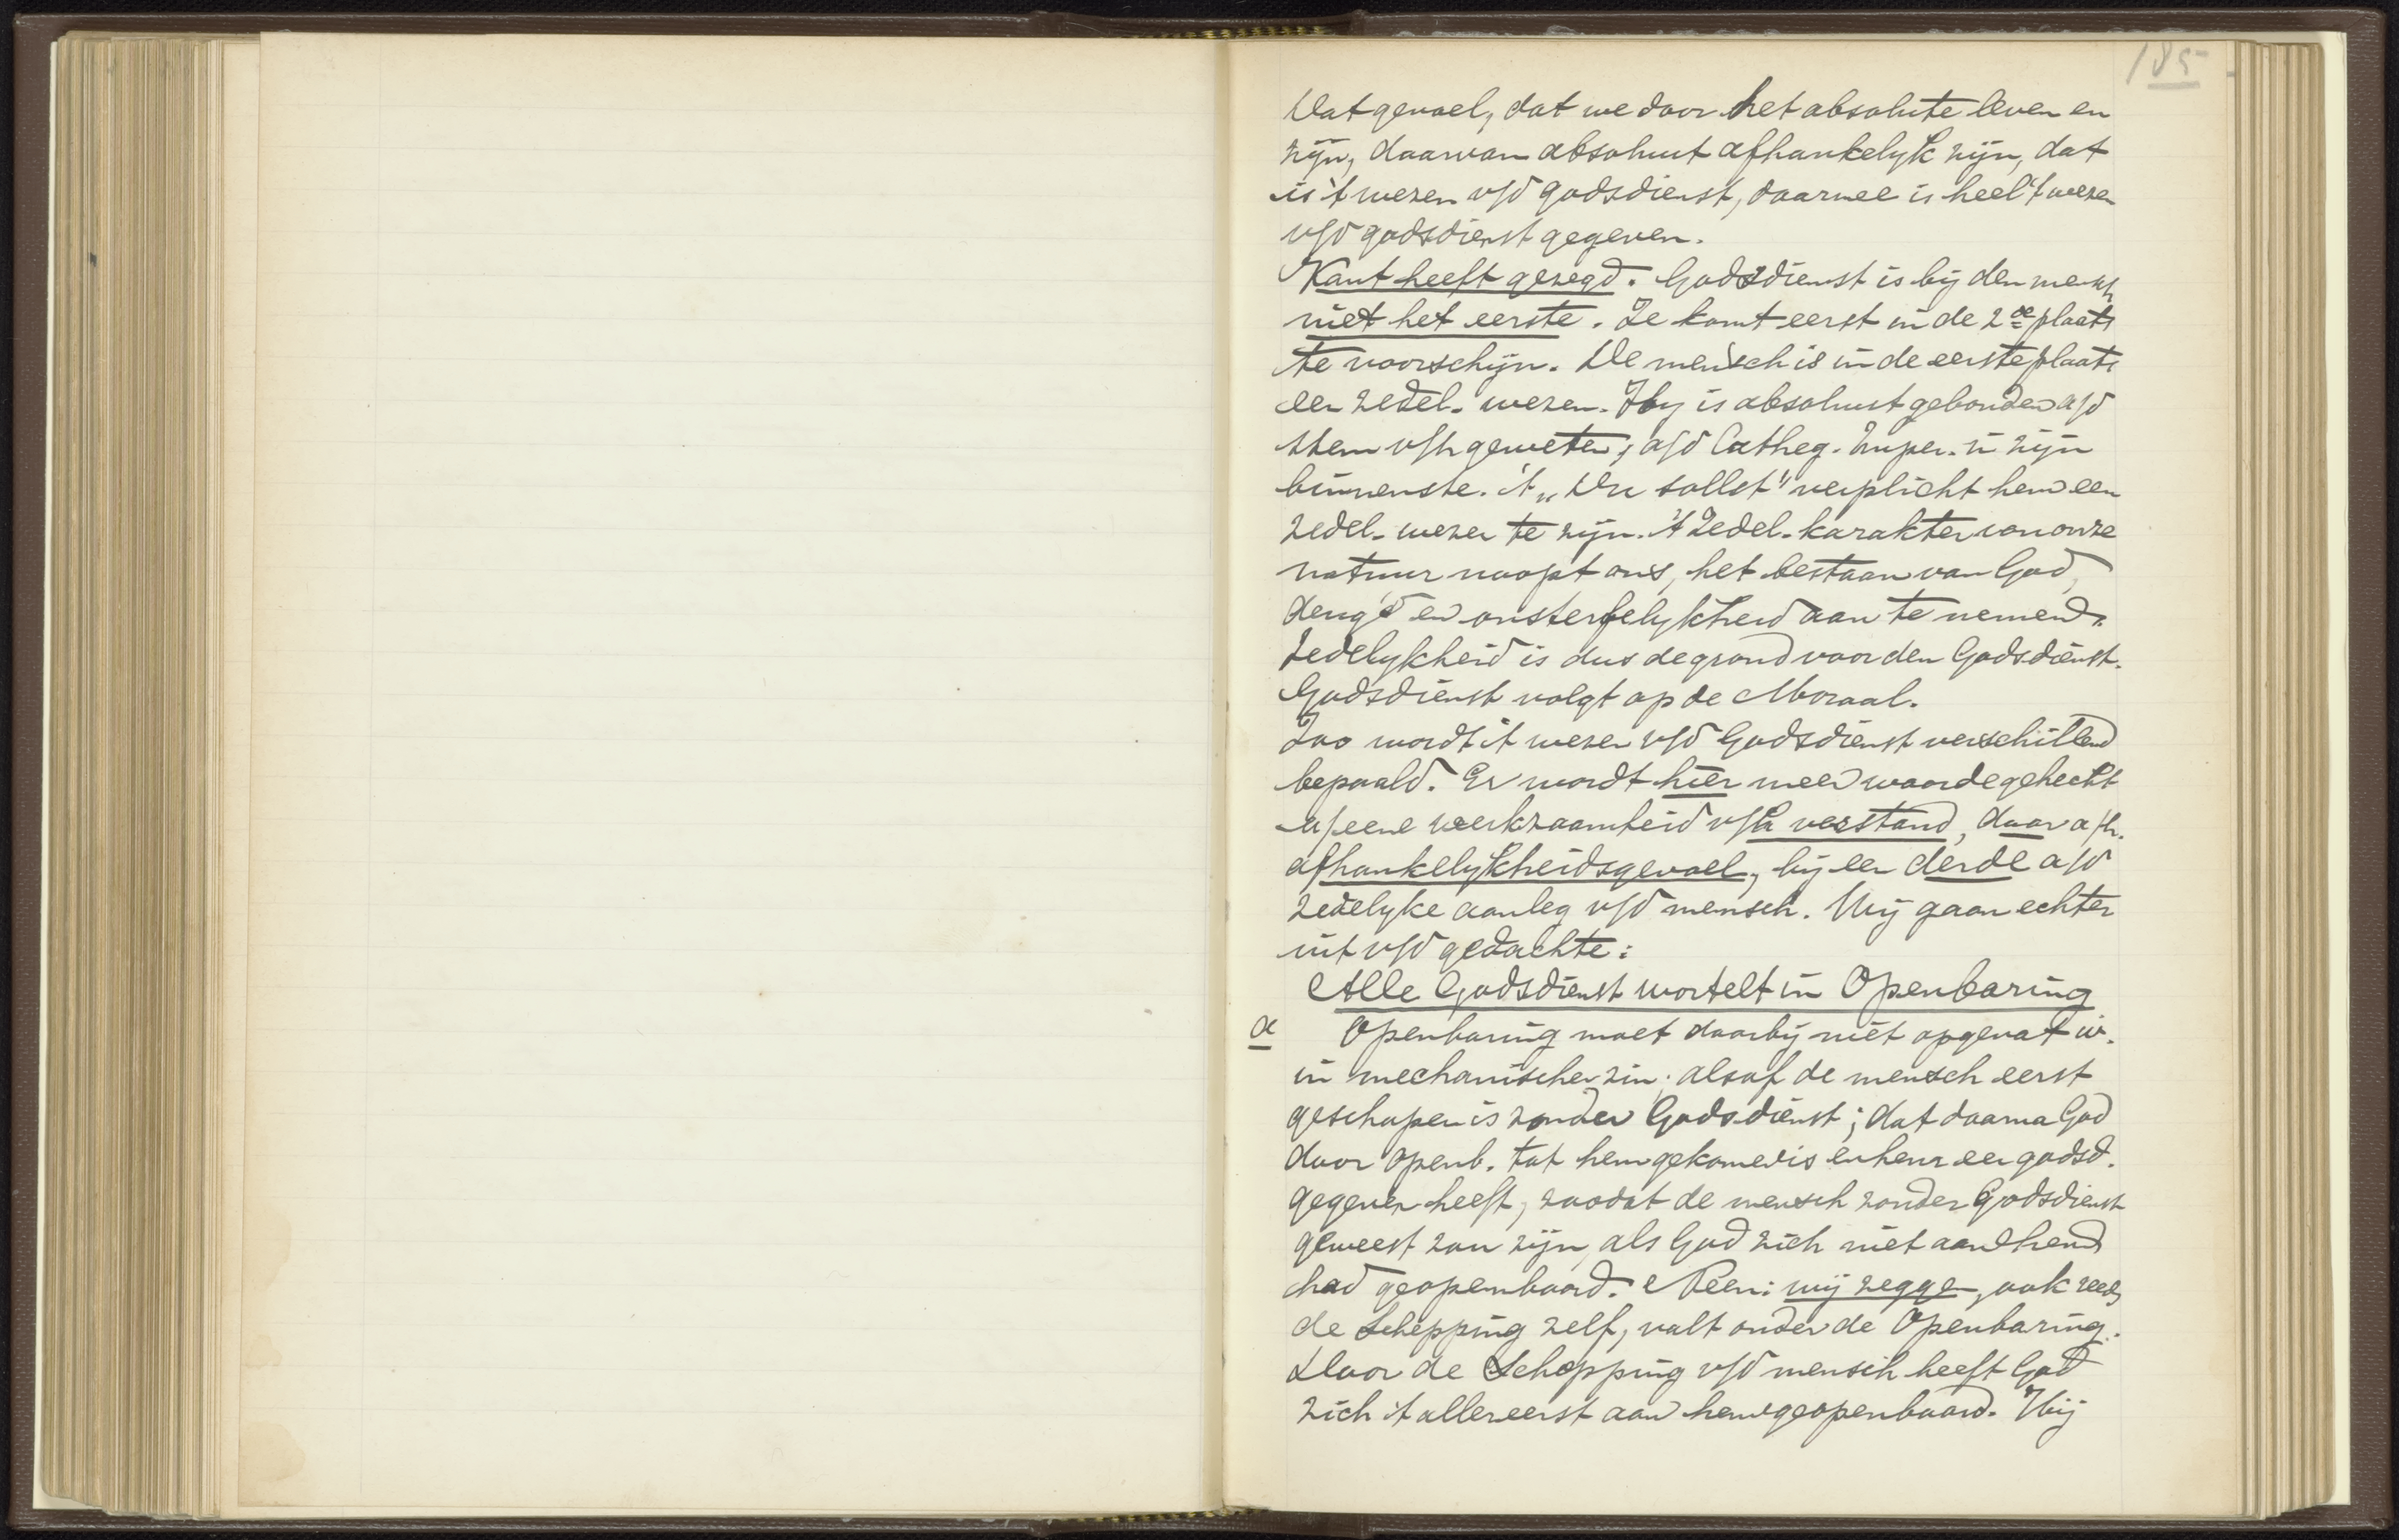 185
Dat gevoel, dat we door het absolute leven en
zijn, daarvan absoluut afhankelijk zijn, dat
is 't wezen v/d godsdienst, daarmee is heel 't wezen
v/d godsdienst gegeven.
Kant heeft gezegd. Godsdienst is bij den mensch
niet het eerste. Ze komt eerst in de 2de plaats
te voorschijn. De mensch is in de eerste plaats
een zedel. wezen. Hij is absoluut gebonden a/d
stem v/h geweten, a/d Catheg. Imper. in zijn
binnenste. 't „Du sollst" verplicht hem een
zedel. wezen te zijn. 't Zedel. karakter van onze
natuur noopt ons, het bestaan van God,
deugd en onsterfelijkheid aan te nemen.
Zedelijkheid is dus de grond voor den Godsdienst.
Godsdienst volgt op de Moraal.
Zoo wordt 't wezen v/d Godsdienst verschillend
bepaald. Er wordt hier meer waarde gehecht
a/eene werkzaamheid v/h verstand, daar a/h.
afhankelijkheidsgevoel, bij een derde a/d
zedelijke aanleg v/d mensch. Wij gaan echter
uit v/d gedachte:
Alle Godsdienst wortelt in Openbaring
α Openbaring moet daarbij niet opgevat w.
in mechanischen zin; alsof de mensch eerst
geschapen is zonder Godsdienst; dat daarna God
door openb. tot hem gekomen is en hem een godsd.
gegeven heeft, zoodat de mensch zonder Godsdienst
geweest zou zijn, als God zich niet aan hem
had geopenbaard. Neen: wij zeggen, ook reeds
de Schepping zelf, valt onder de Openbaring.
Door de Schepping v/d mensch heeft God
zich 't allereerst aan hem geopenbaard. Hij